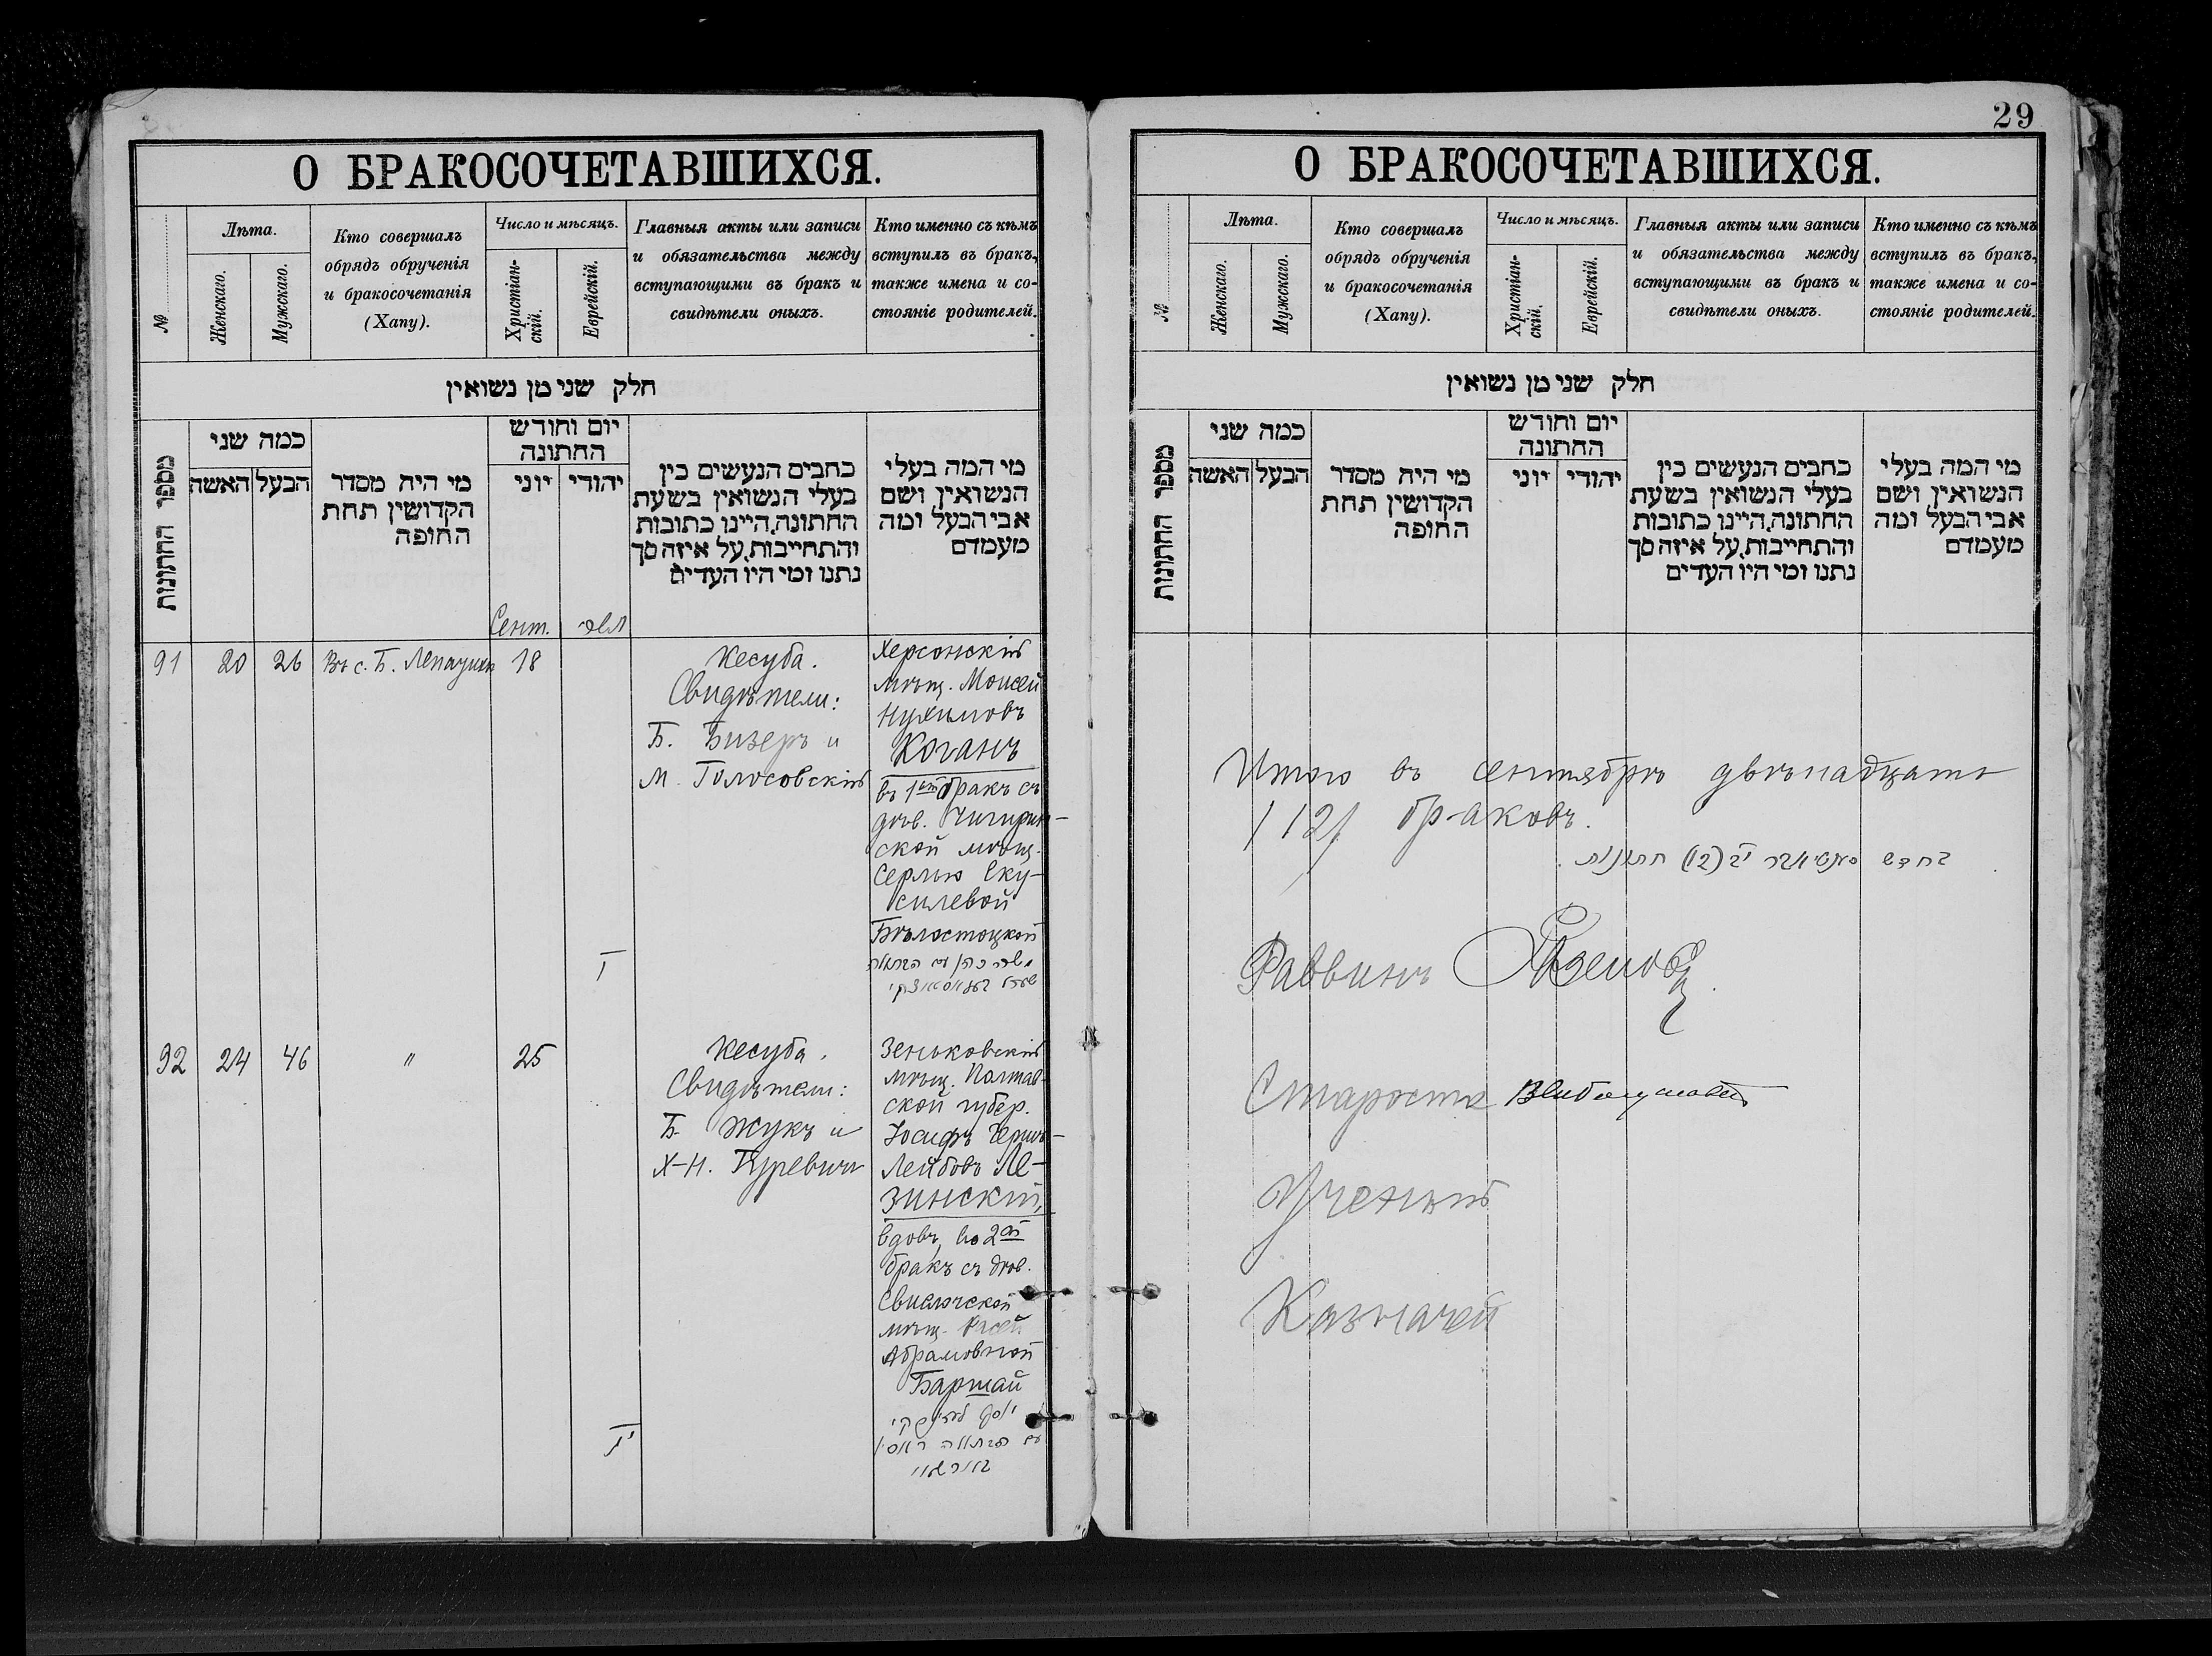 О БРАКОСОЧЕТАВШИХСЯ.
№
Лѣта.
Женскаго.
Мужскаго.
Кто совершалъ
обрядъ обрученія
и бракосочетанія
(Хапу).
Число и мѣсяцъ.
Христіан-
скій.
Еврейскій.
Главныя акты или записи
и обязательства между
вступающими въ бракъ и
свидѣтели оныхъ.
Кто именно съ кѣмъ
вступилъ въ бракъ,
также имена и со-
стояніе родителей.
חלק שני מן נשואין
מספר החתונות
כמה שני
האשה
הבעל
מי היה מסדר
הקדושין תחת
החופה
יום וחודש
החתונה
יוני
יהודי
כתבים הנעשים בין
בעלי הנשואין בשעת
החתונה, היינו כתובות
והתחייבות, על איזה סך
נתנו ומי היו העדים
מי המה בעלי
הנשואין ושם
אבי הבעל ומה
מעמדם
Сент.
91 20 26 Въ с. Б. 18
Кесуба.
Свидѣтели:
Б. Бизеръ и
М. Голосовскій
Херсонскій
мѣщ. Моисей
Нухимовъ
Коганъ
въ 1ый бракъ съ
дѣв. Чигирин-
ской мѣщ.
Серлью Еку-
силевой
Бѣлостоцкой
92 24 46 " 25
Кесуба.
Свидѣтели:
Б. Жукъ и
Х-Н. Гуревичъ
Зеньковскій
мѣщ. Полтав-
ской губер.
Іосифъ Гершъ-
Лейбовъ Ле-
зинскій,
вдовъ, во 2ой
бракъ съ дѣв.
Свислочской
мѣщ. Расей
Абрамовной
Баршай
29
О БРАКОСОЧЕТАВШИХСЯ.
№
Лѣта.
Женскаго.
Мужскаго.
Кто совершалъ
обрядъ обрученія
и бракосочетанія
(Хапу).
Число и мѣсяцъ.
Христіан-
скій.
Еврейскій.
Главныя акты или записи
и обязательства между
вступающими въ бракъ и
свидѣтели оныхъ.
Кто именно съ кѣмъ
вступилъ въ бракъ,
также имена и со-
стояніе родителей.
חלק שני מן נשואין
מספר החתונות
כמה שני
האשה
הבעל
מי היה מסדר
הקדושין תחת
החופה
יום וחודש
החתונה
יוני
יהודי
כתבים הנעשים בין
בעלי הנשואין בשעת
החתונה, היינו כתובות
והתחייבות, על איזה סך
נתנו ומי היו העדים
מי המה בעלי
הנשואין ושם
אבי הבעל ומה
מעמדם
Итого въ сентябрѣ двѣнадцать
/12/ браковъ.
בחדש סענטיאבר יב (12) חתונות
Раввинъ
Староста
Ученый
Казначей